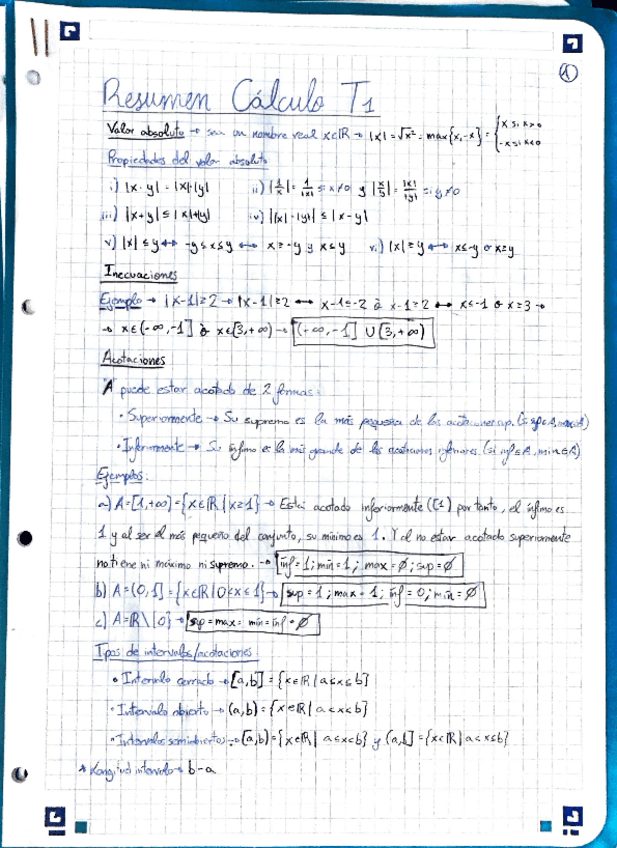 1
Resumen Cálculo T1
Valor absoluto → sea un nombre real x∈ℝ → |x| = √x² = max{x,-x} = {x si x>0
-x si x<0
Propiedades del valor absoluto
i) |x·y| = |x|·|y| ii) |1/x| = 1/|x| si x≠0 y |x/y| = |x|/|y| si y≠0
iii) |x+y| ≤ |x|+|y| iv) ||x|-|y|| ≤ |x-y|
v) |x| ≤ y ↔ -y≤x≤y ↔ x≥-y y x≤y vi) |x|≥y ↔ x≤-y o x≥y
Inecuaciones
Ejemplo → |x-1|≥2 → |x-1|≥2 ↔ x-1≤-2 ò x-1≥2 ↔ x≤-1 o x≥3 →
→ x∈(-∞,-1] ò x∈[3,+∞) → (-∞,-1] U [3,+∞)
Acotaciones
"A" puede estar acotado de 2 formas:
• Superiormente → Su supremo es la más pequeña de las acotaciones sup. (si sup∈A, max∈A)
• Inferiormente → Su ínfimo es la más grande de las acotaciones inferiores. (si inf∈A, min∈A)
Ejemplos:
a) A=[1,+∞) = {x∈ℝ | x≥1} → Está acotado inferiormente ([1) por tanto, el ínfimo es
1 y al ser el más pequeño del conjunto, su mínimo es 1. Y al no estar acotado superiormente
no tiene ni máximo ni supremo. → inf=1; min=1; max=∅; sup=∅
b) A=(0,1] = {x∈ℝ | 0<x≤1} → sup=1; max=1; inf=0; min=∅
c) A=ℝ\{0} → sup=max=min=inf=∅
Tipos de intervalos/acotaciones
• Intervalo cerrado → [a,b] = {x∈ℝ | a≤x≤b}
• Intervalo abierto → (a,b) = {x∈ℝ | a<x<b}
• Intervalos semiabiertos → [a,b) = {x∈ℝ | a≤x<b} y (a,b] = {x∈ℝ | a<x≤b}
* Longitud intervalo → b-a